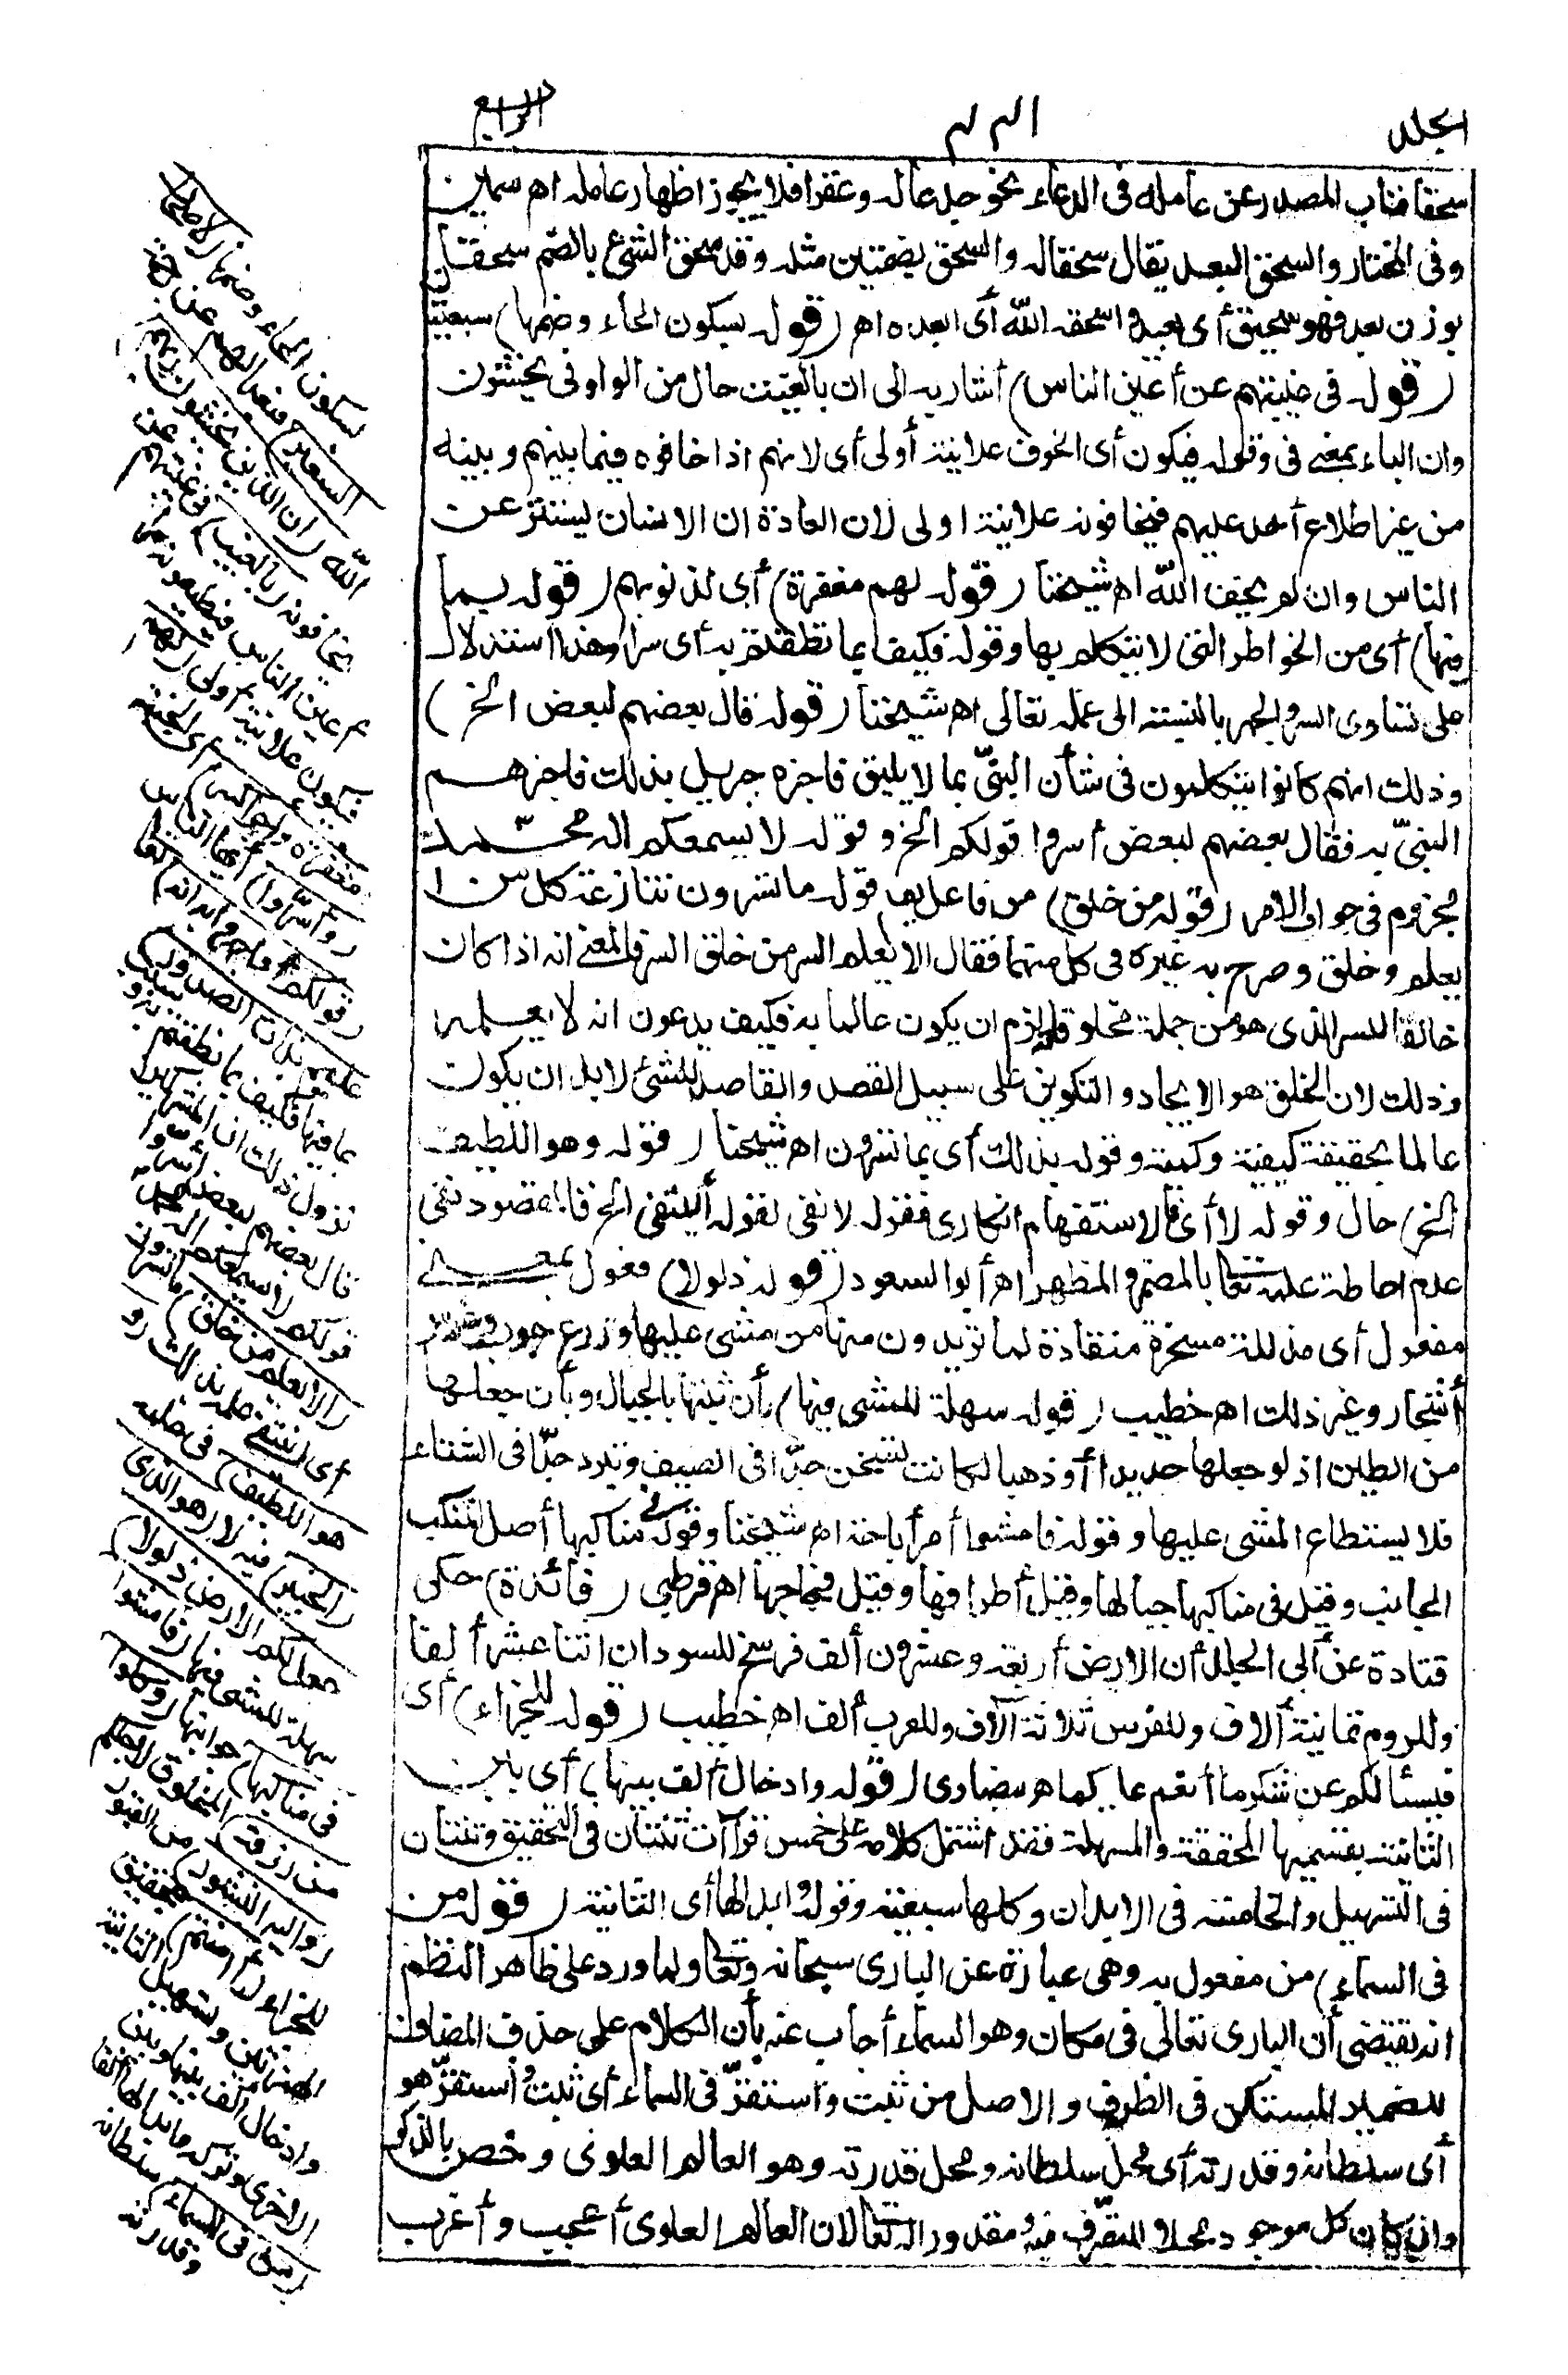 الجلد الرابع
سحقا فناب المصدر عن عامله فى الدعاء نحو جدعاله وعقرا فلا يجوز اظهار عامله اه سمين
وفى المختار والسحق البعد يقال سحقاله والسحق بضمتين مثله وقد سحق الشئ بالضم سحقا
بوزن بعد فهو سحيق أى بعيد واسحقه الله أى ابعده اه (قوله بسكون الحاء وضمها) سبعيتا
(قوله فى غيبتهم عن أعين الناس) أشار به الى ان بالغيب حال من الواو فى يخشون
وان الباء بمعنى فى وقوله فيكون أى الخوف علانية أولى أى لانهم اذا خافوه فيما بينهم وبينه
من غير اطلاع أحد عليهم فيخافونه علانية اولى لان العادة ان الانسان يستتر عن
الناس وان لم يخف الله اه شيخنا (قوله لهم مغفرة) أى لذنوبهم (قوله بما
فيها) أى من الخواطر التى لا يتكلم بها وقوله فكيف بما نطقتم به أى سرا وهذا استدلال
على تساوى السر والجهر بالنسبة الى علمه تعالى اه شيخنا (قوله قال بعضهم لبعض الخ)
وذلك انهم كانوا يتكلمون فى شأن النبىّ بما لا يليق فاخبره جبريل بذلك فاخبرهم
النبىّ به فقال بعضهم لبعض أسروا قولكم الخ وقوله لا يسمعكم اله محمد
مجزوم فى جواب الامر (قوله من خلق) من فاعل يعلم قوله ما تسرون تنازعه كل من
يعلم وخلق وصرح به غيره فى كل منهما فقال الا يعلم السر من خلق السر والمعنى انه اذا كان
خالقا للسر الذى هو من جملة مخلوقاته لزم ان يكون عالما به فكيف يدعون انه لا يعلمه
وذلك لان الخلق هو الايجاد والتكوين على سبيل القصد والقاصد للشئ لابد ان يكون
عالما بحقيقته كيفية وكمية وقوله بذلك أى بما تسرون اه شيخنا (قوله وهو اللطيف
الخ) حال وقوله لا أى فالاستفهام انكارى فقوله لا نفى لقوله أينتفى الخ فالمقصود نفى
عدم احاطة علمه تعالى بالمضمر والمظهر اه أبوالسعود (قوله ذلولا) فعول بمعنى
مفعول أى مذللة مسخرة منقادة لما تريدون منها من مشى عليها وزرع حبوب وغرس
أشجار وغير ذلك اه خطيب (قوله سهلة للمشى فيها) بأن ثبتها بالجبال وبأن جعلها
من الطين اذ لو جعلها حديدا أو ذهبا لكانت تسخن جدّا فى الصيف وتبرد جدّا فى الشتاء
فلا يستطاع المشى عليها وقوله فامشوا أمر أباحة اه شيخنا وقوله فى مناكبها أصل المنكب
الجانب وقيل فى مناكبها جبالها وقيل أطرافها وقيل فجاجها اه قرطبى (فائدة) حكى
قتادة عن أبى الجلد أن الارض أربعة وعشرون ألف فرسخ للسودان اثنا عشر ألفا
وللروم ثمانية ألاف وللفرس ثلاثة آلاف وللعرب ألف اه خطيب (قوله للجزاء) أى
فيسألكم عن شكر ما أنعم عليكم اه بيضاوى (قوله وادخال ألف بينها) أى بين
الثانية بقسميها المحققة والمسهلة فقد اشتمل كلامه على خمس قراآت ثنتان فى التحقيق وثنتان
فى التسهيل والخامسة فى الابدال وكلها سبعية وقوله وابدالها أى الثانية (قوله من
فى السماء) من مفعول به وهى عبارة عن البارى سبحانه وتعالى ولما ورد على ظاهر النظم
انه يقتضى أن البارى تعالى فى مكان وهو السماء أجاب عنه بأن الكلام على حذف المضاف
للضمير المستكن فى الظرف والاصل من ثبت واستقرّ فى السماء أى ثبت واستقرّ هو
أى سلطانه وقدرته أى محل سلطانه ومحل قدرته وهو العالم العلوى وخص بالذكر
وان كان كل موجود محلا للتصرّف فيه ومقدورا له تعالى لان العالم العلوى أعجب وأغرب
بسكون الحاء وضمها (لاصحاب
السعير) فبعدا لهم عن رحمة
الله (ان الذين يخشون ربهم)
يخافونه (بالغيب) فى غيبتهم عن
أعين الناس فيطيعونه سرا
فيكون علانية أولى (لهم
مغفرة وأجر كبير) أى الجنة
(وأسرّوا) أيها الناس
(قولكم أو اجهروا به انه) تعالى
(عليم بذات الصدور)
بما فيها فكيف بما نطقتم به وسبب
نزول ذلك ان المشركين
قال بعضهم لبعض أسرّوا
قولكم لا يسمعكم اله محمد
(الا يعلم من خلق) ما تسرون
أى أينتفى علمه بذلك (و
هو اللطيف) فى علمه
(الخبير) فيه لا (هو الذى
جعل لكم الارض ذلولا)
سهلة للمشى فيها (فامشوا
فى مناكبها) جوانبها (وكلوا
من رزقه) المخلوق لاجلكم
(واليه النشور) من القبور
للجزاء (أأمنتم) بتحقيق
الهمزتين وتسهيل الثانية
وادخال ألف بينها وبين
الاخرى وتركه وابدالها ألفا
(من فى السماء) سلطانه
وقدرته